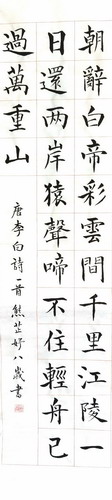 朝辭白帝彩雲間千里江陵一
日還两岸猿聲啼不住輕舟已
過萬重山
唐李白詩一首熊芷妤八歲書